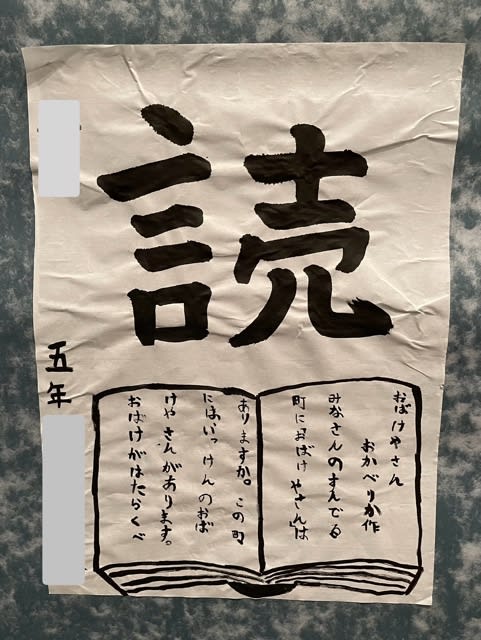 読
おばけやさん
おかべりか作
みなさんのすんでる
町に「おばけやさん」は
ありますか。この町
にはいっけんのおば
けやさんがあります。
おばけがはたらくべ
五年